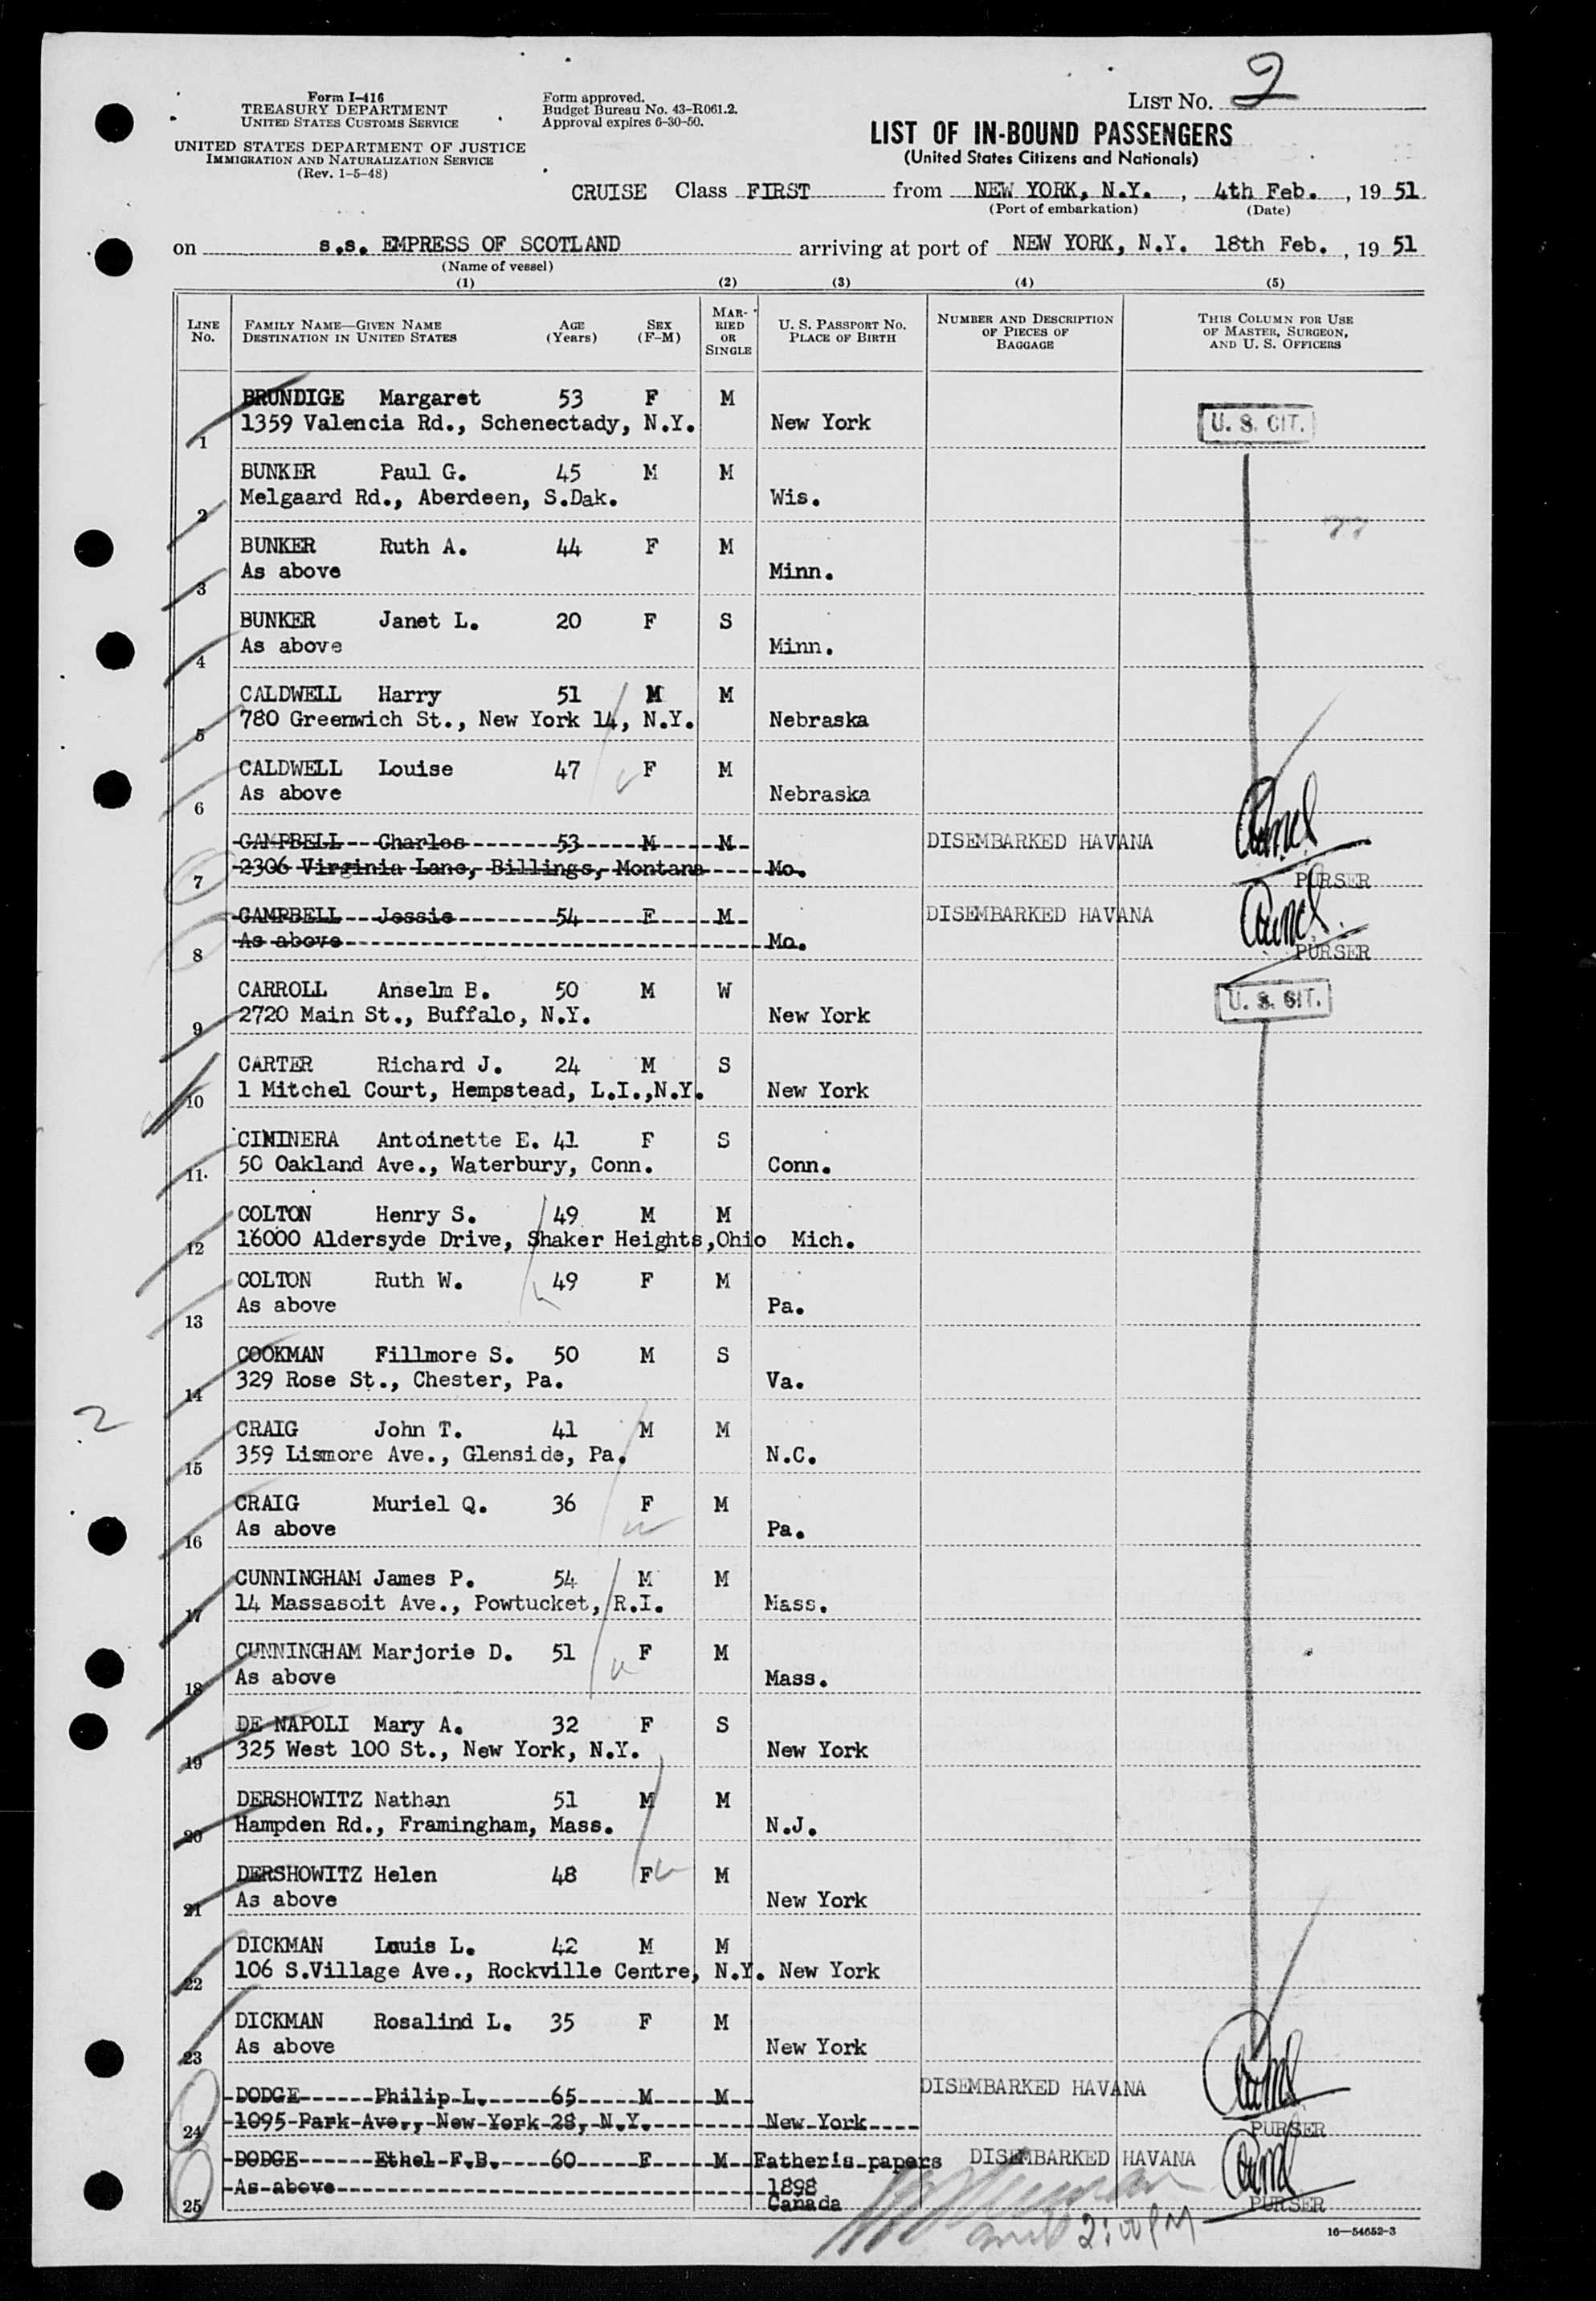 Form I-416
TREASURY DEPARTMENT
UNITED STATES CUSTOMS SERVICE
UNITED STATES DEPARTMENT OF JUSTICE
IMMIGRATION AND NATURALIZATION SERVICE
(Rev. 1-5-48)
Form approved.
Budget Bureau No. 43-R061.2.
Approval expires 6-30-50.
LIST NO. 2
LIST OF IN-BOUND PASSENGERS
(United States Citizens and Nationals)
CRUISE Class FIRST from NEW YORK, N.Y., 4th Feb., 1951
(Port of embarkation) (Date)
on s.s. EMPRESS OF SCOTLAND arriving at port of NEW YORK, N.Y. 18th Feb., 1951
(Name of vessel)
(1) (2) (3) (4) (5)
LINE NO.
FAMILY NAME—GIVEN NAME
DESTINATION IN UNITED STATES
AGE (Years)
SEX (F-M)
MARRIED OR SINGLE
U. S. PASSPORT NO.
PLACE OF BIRTH
NUMBER AND DESCRIPTION OF PIECES OF BAGGAGE
THIS COLUMN FOR USE OF MASTER, SURGEON, AND U. S. OFFICERS
BRUNDIGE Margaret 53 F M
1 1359 Valencia Rd., Schenectady, N.Y. New York U. S. CIT.
BUNKER Paul G. 45 M M
2 Melgaard Rd., Aberdeen, S.Dak. Wis.
BUNKER Ruth A. 44 F M
3 As above Minn.
BUNKER Janet L. 20 F S
4 As above Minn.
CALDWELL Harry 51 M M
5 780 Greenwich St., New York 14, N.Y. Nebraska
CALDWELL Louise 47 F M
6 As above Nebraska
CAMPBELL Charles 53 M M DISEMBARKED HAVANA
7 2306 Virginia Lane, Billings, Montana Mo. PURSER
CAMPBELL Jessie 54 F M DISEMBARKED HAVANA
8 As above Mo. PURSER
CARROLL Anselm B. 50 M W U. S. CIT.
9 2720 Main St., Buffalo, N.Y. New York
CARTER Richard J. 24 M S
10 1 Mitchel Court, Hempstead, L.I.,N.Y. New York
CIMINERA Antoinette E. 41 F S
11 50 Oakland Ave., Waterbury, Conn. Conn.
COLTON Henry S. 49 M M
12 16000 Aldersyde Drive, Shaker Heights,Ohio Mich.
COLTON Ruth W. 49 F M
13 As above Pa.
COOKMAN Fillmore S. 50 M S
14 329 Rose St., Chester, Pa. Va.
2
CRAIG John T. 41 M M
15 359 Lismore Ave., Glenside, Pa. N.C.
CRAIG Muriel Q. 36 F M
16 As above Pa.
CUNNINGHAM James P. 54 M M
17 14 Massasoit Ave., Powtucket, R.I. Mass.
CUNNINGHAM Marjorie D. 51 F M
18 As above Mass.
DE NAPOLI Mary A. 32 F S
19 325 West 100 St., New York, N.Y. New York
DERSHOWITZ Nathan 51 M M
20 Hampden Rd., Framingham, Mass. N.J.
DERSHOWITZ Helen 48 F M
21 As above New York
DICKMAN Louis L. 42 M M
22 106 S.Village Ave., Rockville Centre, N.Y. New York
DICKMAN Rosalind L. 35 F M
23 As above New York
DODGE Philip L. 65 M M DISEMBARKED HAVANA
24 1095 Park Ave., New York 28, N.Y. New York PURSER
DODGE Ethel F.B. 60 F M Fatheris papers DISEMBARKED HAVANA
25 As above 1898
Canada PURSER
2:00 PM
16—54652-3